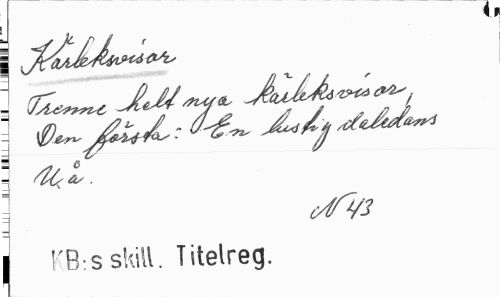 Kärleksvisor
Trenne helt nya kärleksvisor,
Den första: En lustig daledans
U.å.
N 43
KB:s skill. Titelreg.